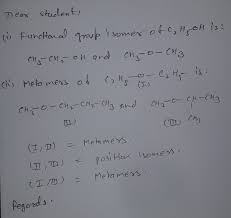 Dear student,
(i) Functional group isomer of C2H5OH is:
CH3-CH2-OH and CH3-O-CH3
(ii) Metamers of C2H5-O-C2H5- is:
(I)
CH3-O-CH2-CH2-CH3 and CH3-O-CH-CH3
(II) (III) CH3
(I, II) = Metamers
(II, III) = position isomers.
(I, III) = Metamers.
Regards.